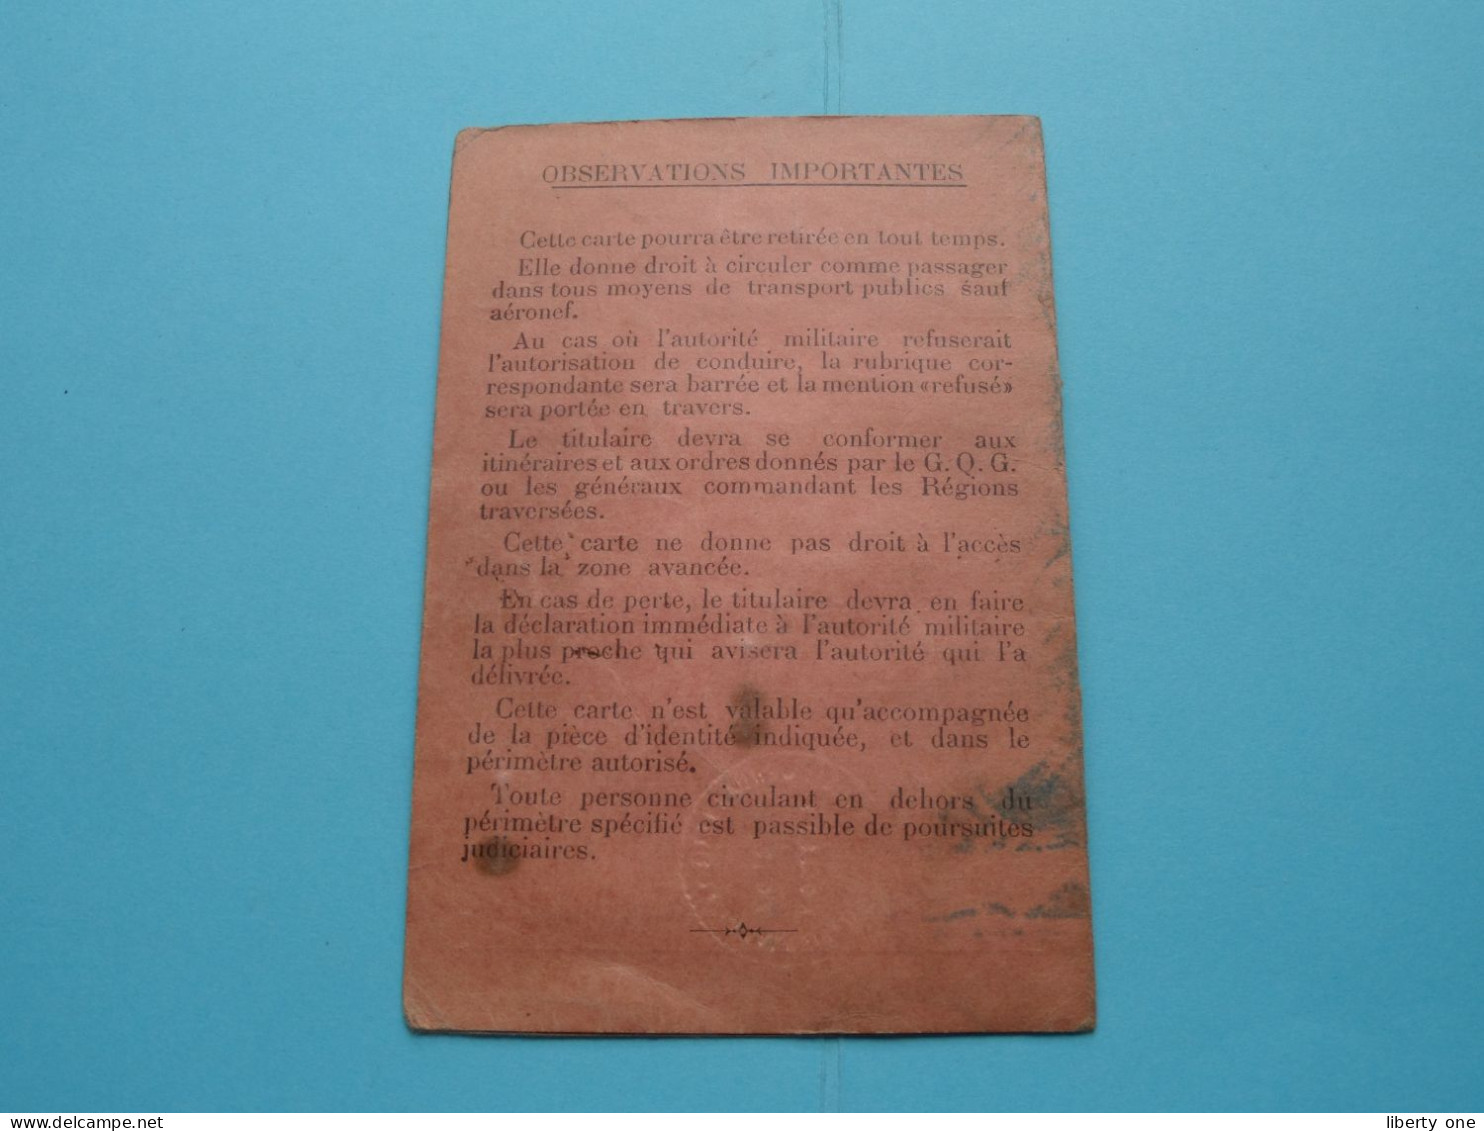 OBSERVATIONS IMPORTANTES
Cette carte pourra être retirée en tout temps.
Elle donne droit à circuler comme passager
dans tous moyens de transport publics sauf
aéronef.
Au cas où l'autorité militaire refuserait
l'autorisation de conduire, la rubrique cor-
respondante sera barrée et la mention «refusé»
sera portée en travers.
Le titulaire devra se conformer aux
itinéraires et aux ordres donnés par le G. Q. G.
ou les généraux commandant les Régions
traversées.
Cette carte ne donne pas droit à l'accès
dans la zone avancée.
En cas de perte, le titulaire devra en faire
la déclaration immédiate à l'autorité militaire
la plus proche qui avisera l'autorité qui l'a
délivrée.
Cette carte n'est valable qu'accompagnée
de la pièce d'identité indiquée, et dans le
périmètre autorisé.
Toute personne circulant en dehors du
périmètre spécifié est passible de poursuites
judiciaires.
delcampe.net
liberty one